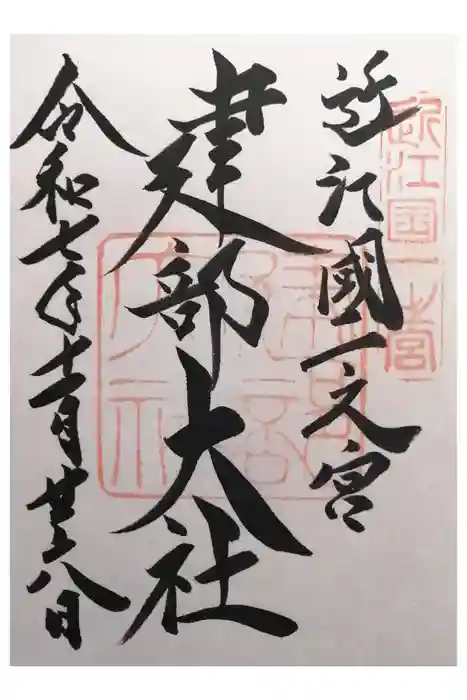 近江國一之宮
建部大社
令和七年十一月廿八日
近江国一宮
建部
大社